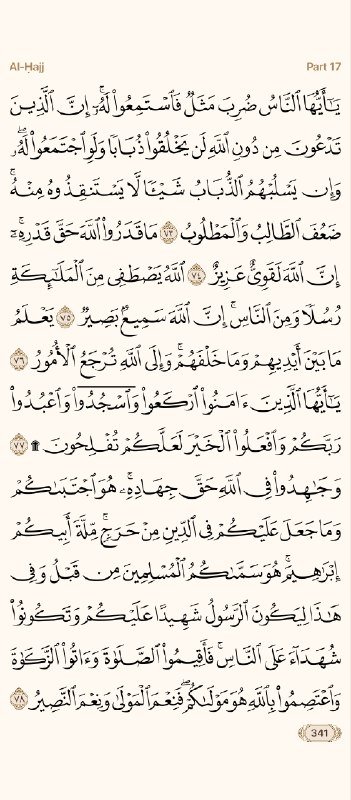 Al-Ḥajj Part 17
يَـٰٓأَيُّهَا ٱلنَّاسُ ضُرِبَ مَثَلٌ فَٱسْتَمِعُوا۟ لَهُۥٓ ۚ إِنَّ ٱلَّذِينَ
تَدْعُونَ مِن دُونِ ٱللَّهِ لَن يَخْلُقُوا۟ ذُبَابًا وَلَوِ ٱجْتَمَعُوا۟ لَهُۥ ۖ
وَإِن يَسْلُبْهُمُ ٱلذُّبَابُ شَيْـًٔا لَّا يَسْتَنقِذُوهُ مِنْهُ ۚ
ضَعُفَ ٱلطَّالِبُ وَٱلْمَطْلُوبُ ٧٣ مَا قَدَرُوا۟ ٱللَّهَ حَقَّ قَدْرِهِۦٓ ۗ
إِنَّ ٱللَّهَ لَقَوِىٌّ عَزِيزٌ ٧٤ ٱللَّهُ يَصْطَفِى مِنَ ٱلْمَلَـٰٓئِكَةِ
رُسُلًا وَمِنَ ٱلنَّاسِ ۚ إِنَّ ٱللَّهَ سَمِيعٌۢ بَصِيرٌ ٧٥ يَعْلَمُ
مَا بَيْنَ أَيْدِيهِمْ وَمَا خَلْفَهُمْ ۗ وَإِلَى ٱللَّهِ تُرْجَعُ ٱلْأُمُورُ ٧٦
يَـٰٓأَيُّهَا ٱلَّذِينَ ءَامَنُوا۟ ٱرْكَعُوا۟ وَٱسْجُدُوا۟ وَٱعْبُدُوا۟
رَبَّكُمْ وَٱفْعَلُوا۟ ٱلْخَيْرَ لَعَلَّكُمْ تُفْلِحُونَ ۩ ٧٧
وَجَـٰهِدُوا۟ فِى ٱللَّهِ حَقَّ جِهَادِهِۦ ۚ هُوَ ٱجْتَبَىٰكُمْ
وَمَا جَعَلَ عَلَيْكُمْ فِى ٱلدِّينِ مِنْ حَرَجٍ ۚ مِّلَّةَ أَبِيكُمْ
إِبْرَٰهِيمَ ۚ هُوَ سَمَّىٰكُمُ ٱلْمُسْلِمِينَ مِن قَبْلُ وَفِى
هَـٰذَا لِيَكُونَ ٱلرَّسُولُ شَهِيدًا عَلَيْكُمْ وَتَكُونُوا۟
شُهَدَآءَ عَلَى ٱلنَّاسِ ۚ فَأَقِيمُوا۟ ٱلصَّلَوٰةَ وَءَاتُوا۟ ٱلزَّكَوٰةَ
وَٱعْتَصِمُوا۟ بِٱللَّهِ هُوَ مَوْلَىٰكُمْ ۖ فَنِعْمَ ٱلْمَوْلَىٰ وَنِعْمَ ٱلنَّصِيرُ ٧٨
341